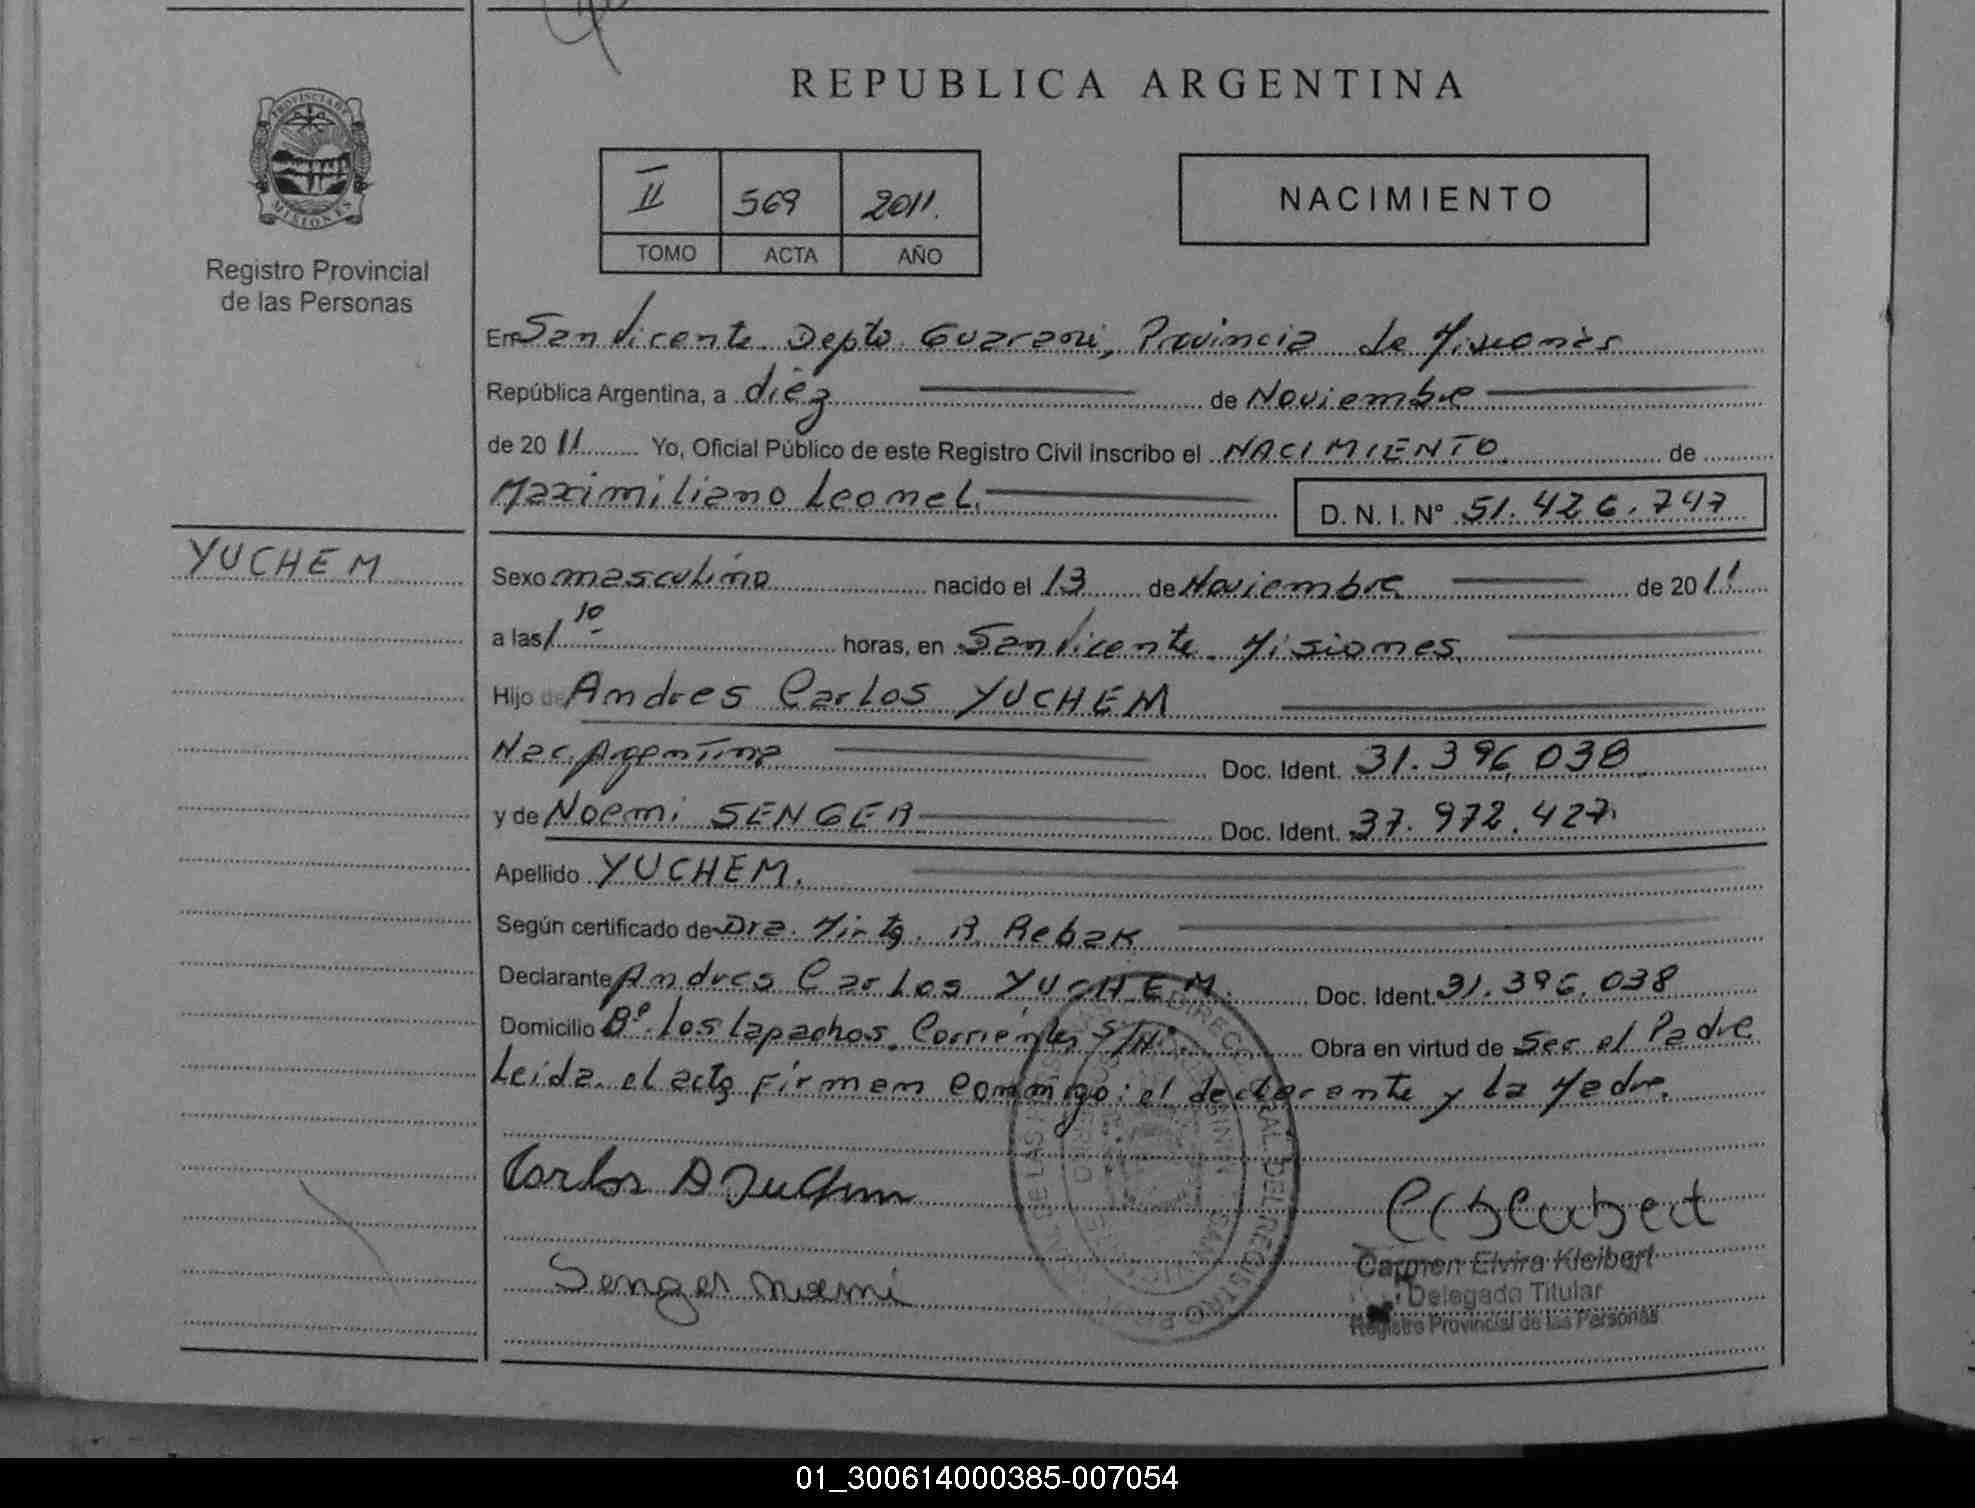 REPUBLICA ARGENTINA
PROVINCIA DE
MISIONES
Registro Provincial
de las Personas
II 569 2011.
TOMO ACTA AÑO
NACIMIENTO
En San Vicente Depto. Guarani, Provincia de Misiones
República Argentina, a diez de Noviembre
de 2011 Yo, Oficial Público de este Registro Civil inscribo el NACIMIENTO de
Maximiliano Leonel. D. N. I. Nº 51.426.747
YUCHEM
Sexo masculino nacido el 13 de Noviembre de 2011
a las 1 10 horas, en San Vicente Misiones
Hijo de Andres Carlos YUCHEM
Nac. Argentina Doc. Ident. 31.396.038
y de Noemi SENGER Doc. Ident. 37.972.427
Apellido YUCHEM.
Según certificado de Dra. Mirta. R. Rebak
Declarante Andres Carlos YUCHEM. Doc. Ident. 31.396.038
Domicilio Bº. Los Lapachos. Corrientes S/Nº. Obra en virtud de Ser el Padre
Leida el acta firman conmigo: el declarante y la Madre.
Carlos A Yuchem
Senger Noemi
Carmen Elvira Kleibert
Delegada Titular
Registro Provincial de las Personas
01_300614000385-007054